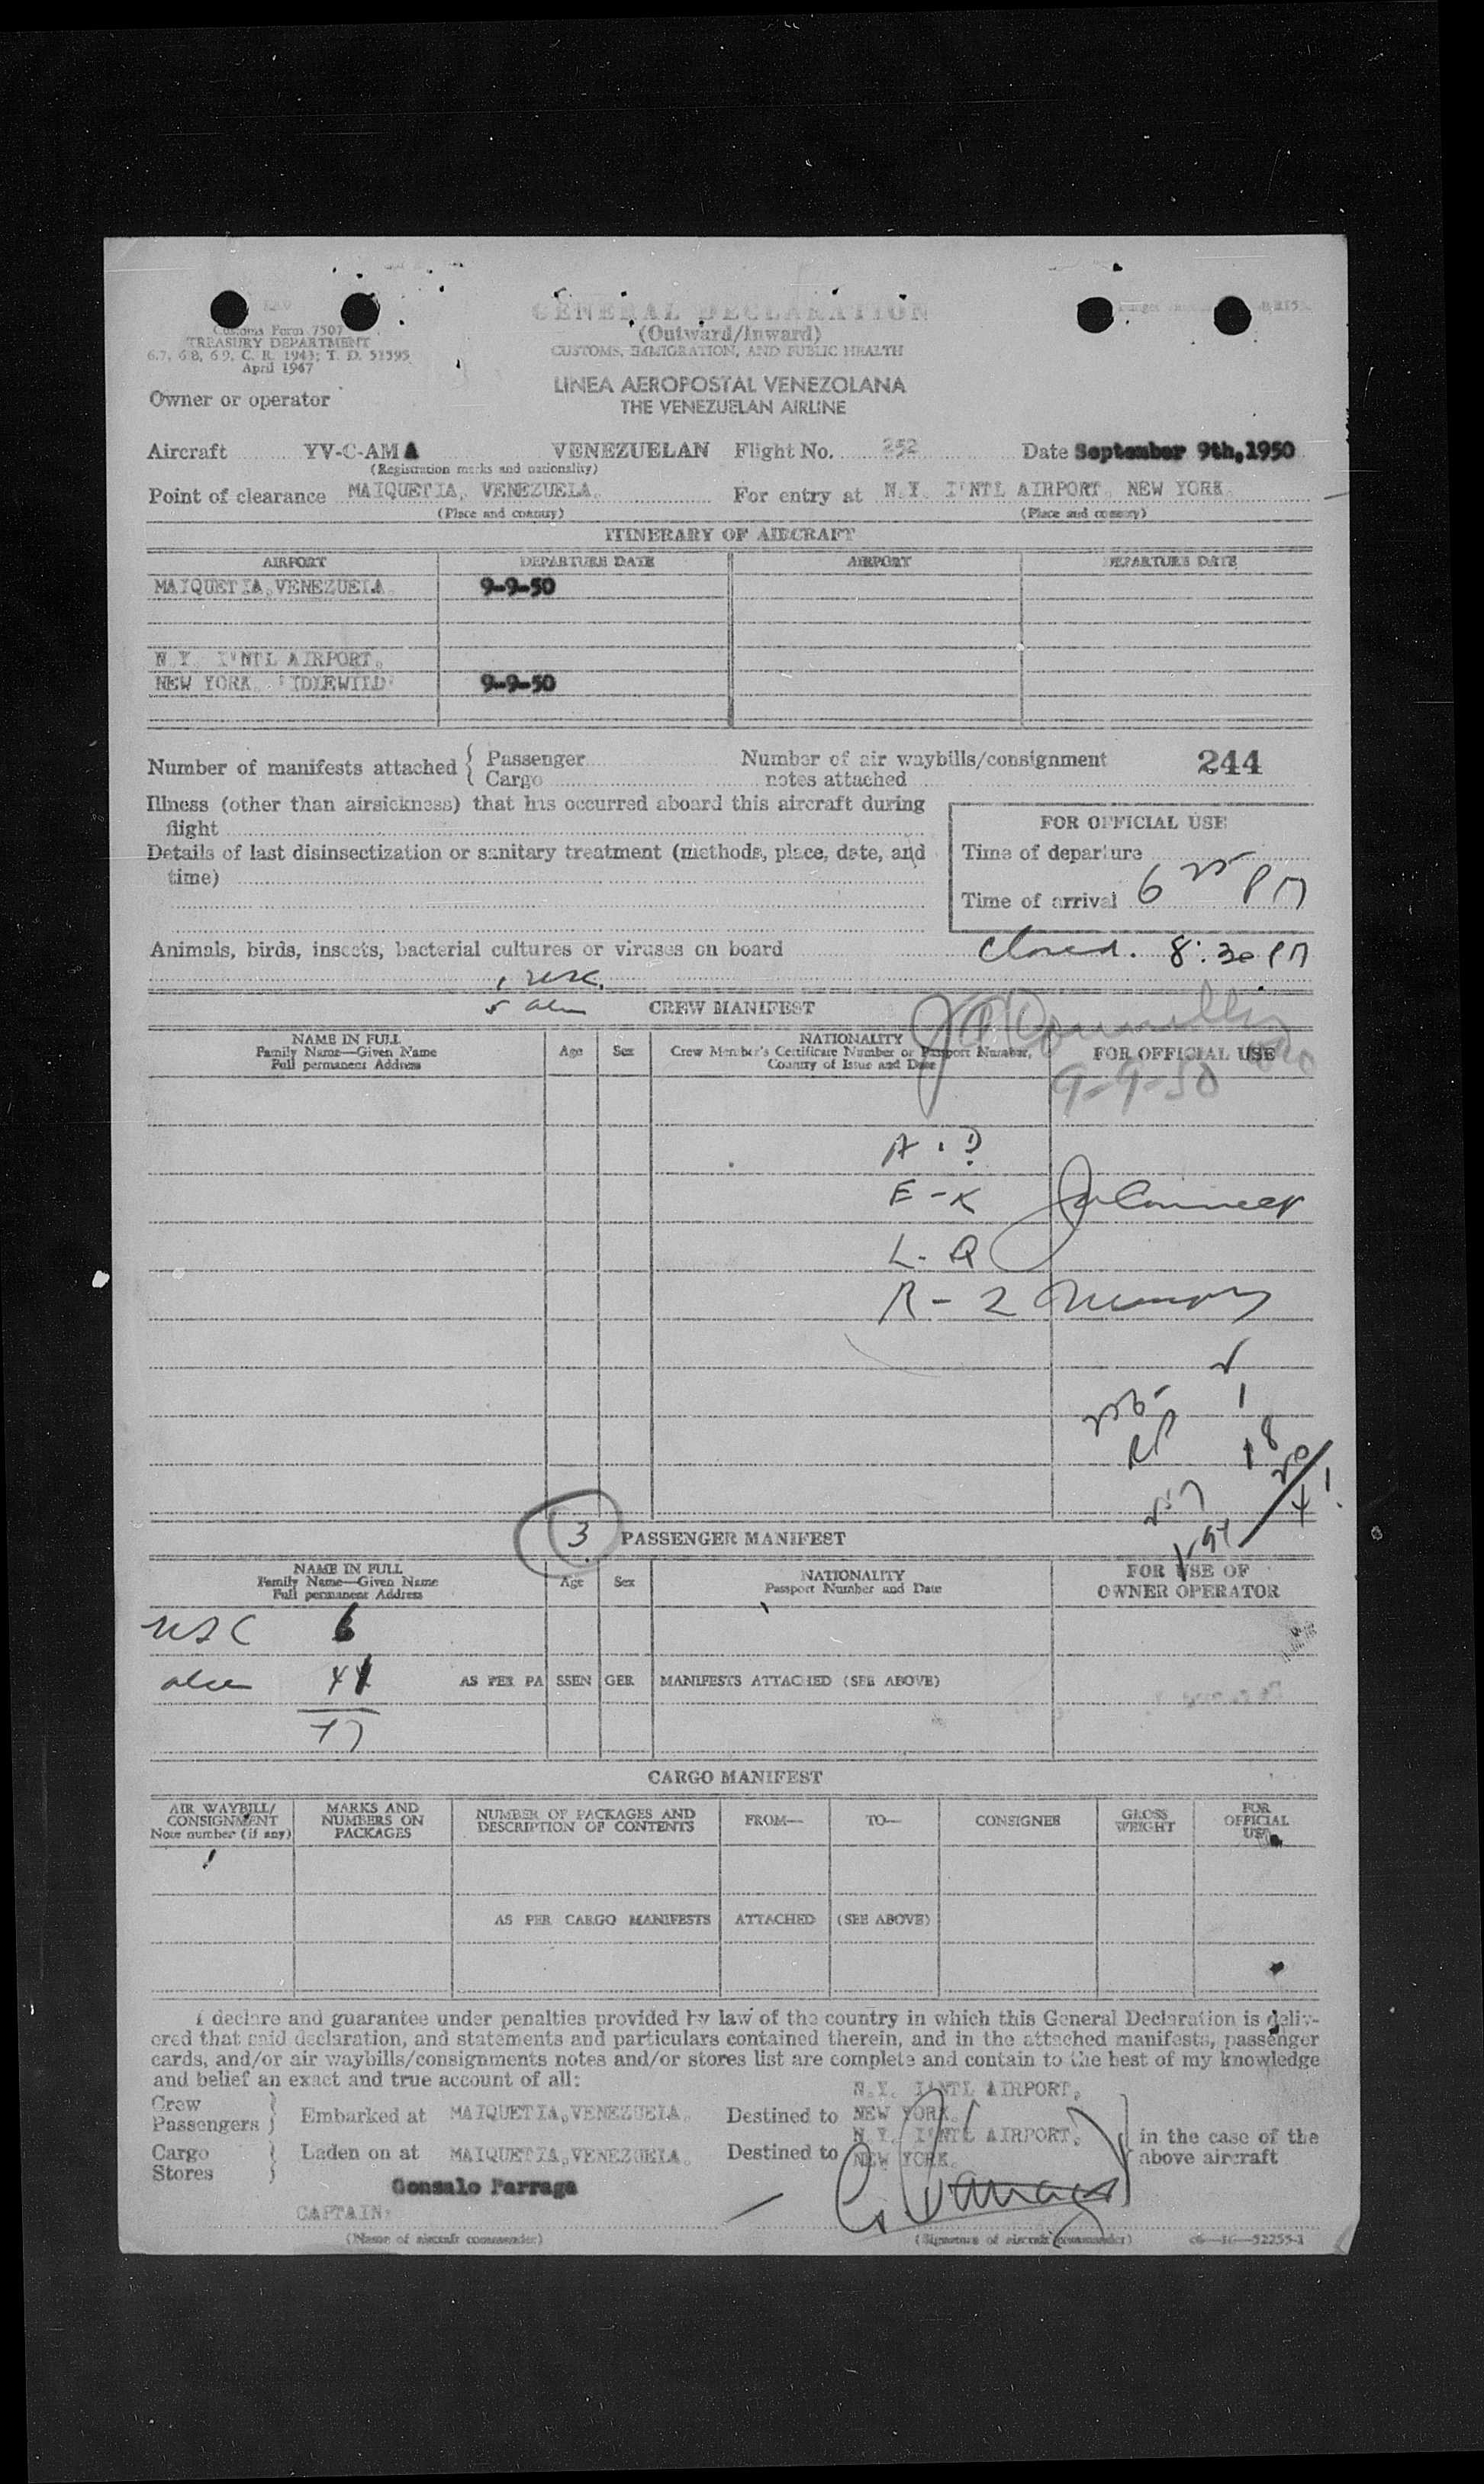 GENERAL DECLARATION
(Outward/Inward)
CUSTOMS, IMMIGRATION, AND PUBLIC HEALTH
Customs Form 7507
TREASURY DEPARTMENT
6.7, 6.8, 6.9, C. R. 1943; T. D. 51595
April 1947
LINEA AEROPOSTAL VENEZOLANA
THE VENEZUELAN AIRLINE
Owner or operator
Aircraft YV-C-AMA VENEZUELAN Flight No. 252 Date September 9th,1950
(Registration marks and nationality)
Point of clearance MAIQUETIA, VENEZUELA. For entry at N.Y. I'NTL AIRPORT. NEW YORK.
(Place and country) (Place and country)
ITINERARY OF AIRCRAFT
AIRPORT DEPARTURE DATE AIRPORT DEPARTURE DATE
MAIQUETIA,VENEZUELA. 9-9-50
N.Y. I'NTL AIRPORT.
NEW YORK. "IDLEWILD" 9-9-50
Number of manifests attached { Passenger Number of air waybills/consignment 244
Cargo notes attached
Illness (other than airsickness) that has occurred aboard this aircraft during
flight
FOR OFFICIAL USE
Details of last disinsectization or sanitary treatment (methods, place, date, and
time)
Time of departure
Time of arrival 6 25 PM
Animals, birds, insects, bacterial cultures or viruses on board
closed. 8:30 PM
1 usc.
5 alien CREW MANIFEST
NAME IN FULL
Family Name—Given Name
Full permanent Address
Age Sex
NATIONALITY
Crew Member's Certificate Number or Passport Number,
Country of Issue and Date
FOR OFFICIAL USE
9-9-50
A - D
E - K
L - Q
R - Z
3 PASSENGER MANIFEST
NAME IN FULL
Family Name—Given Name
Full permanent Address
Age Sex
NATIONALITY
Passport Number and Date
FOR USE OF
OWNER OPERATOR
USC 6
alien 41 AS PER PASSENGER MANIFESTS ATTACHED (SEE ABOVE)
CARGO MANIFEST
AIR WAYBILL/
CONSIGNMENT
Note number (if any)
MARKS AND
NUMBERS ON
PACKAGES
NUMBER OF PACKAGES AND
DESCRIPTION OF CONTENTS
FROM— TO— CONSIGNEE
GROSS
WEIGHT
FOR
OFFICIAL
USE
AS PER CARGO MANIFESTS ATTACHED (SEE ABOVE)
I declare and guarantee under penalties provided by law of the country in which this General Declaration is deliv-
ered that said declaration, and statements and particulars contained therein, and in the attached manifests, passenger
cards, and/or air waybills/consignments notes and/or stores list are complete and contain to the best of my knowledge
and belief an exact and true account of all:
N.Y. I'NTL AIRPORT,
Crew
Passengers } Embarked at MAIQUETIA,VENEZUELA. Destined to NEW YORK.
N.Y. I'NTL AIRPORT,
Cargo
Stores } Laden on at MAIQUETIA,VENEZUELA. Destined to NEW YORK.
} in the case of the
above aircraft
Gonsalo Parraga
CAPTAIN:
(Name of aircraft commander) (Signature of aircraft commander) c6—16—52255-1